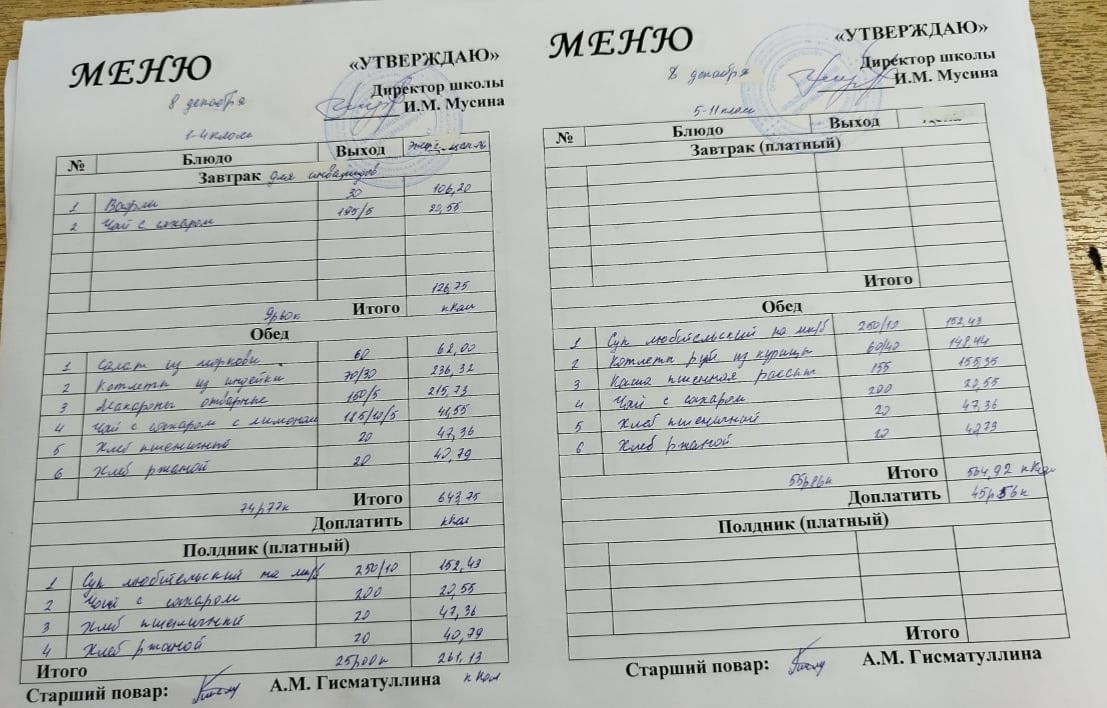 МЕНЮ
«УТВЕРЖДАЮ»
Директор школы
И.М. Мусина
8 декабря
1-4 класс
№ Блюдо Выход
Завтрак для инвалидов
1 Вафли 30 106,20
2 Чай с сахаром 195/5 20,55
126,75
9р60к Итого кКал
Обед
1 Салат из моркови 60 62,00
2 Котлеты из индейки 70/30 236,32
3 Макароны отварные 150/5 215,73
4 Чай с сахаром с лимоном 185/10/5 41,55
5 Хлеб пшеничный 20 47,36
6 Хлеб ржаной 20 40,79
74р77к Итого 643,75
Доплатить кКал
Полдник (платный)
1 Суп любительский на мк/б 250/10 152,43
2 Чай с сахаром 200 20,55
3 Хлеб пшеничный 20 47,36
4 Хлеб ржаной 20 40,79
Итого 25р00к 261,13
кКал
Старший повар: А.М. Гисматуллина
МЕНЮ
«УТВЕРЖДАЮ»
Директор школы
И.М. Мусина
8 декабря
5-11 класс
№ Блюдо Выход
Завтрак (платный)
Итого
Обед
1 Суп любительский на мк/б 250/10 152,43
2 Котлеты руб из курицы 60/40 148,44
3 Каша пшенная рассып 155 155,35
4 Чай с сахаром 200 20,55
5 Хлеб пшеничный 20 47,36
6 Хлеб ржаной 20
Итого 564,92 кКал
Доплатить 45р56к
Полдник (платный)
Итого
Старший повар: А.М. Гисматуллина